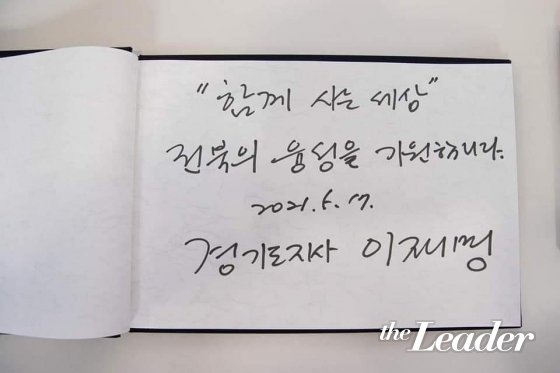 "함께 사는 세상"
전북의 융성을 기원합니다.
2021. 5. 17.
경기도지사 이재명
the Leader